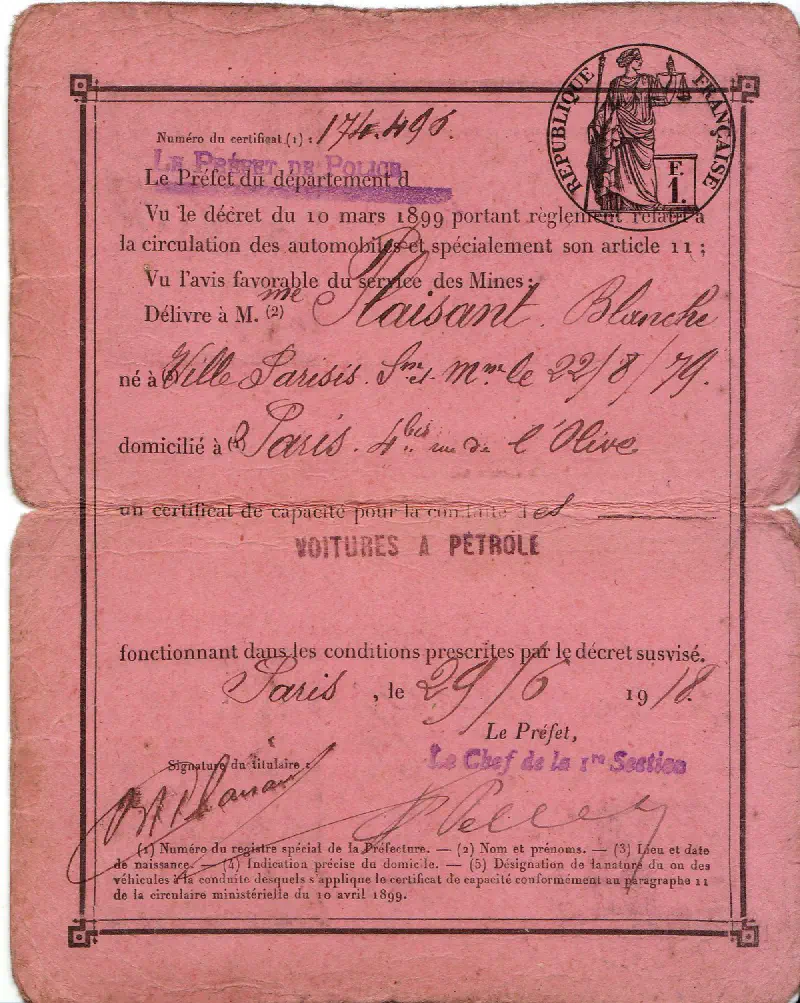 RÉPUBLIQUE FRANÇAISE
F.
1.
Numéro du certificat (1) : 174.496.
LE PRÉFET DE POLICE
Le Préfet du département d
Vu le décret du 10 mars 1899 portant règlement relatif à
la circulation des automobiles et spécialement son article 11 ;
Vu l'avis favorable du service des Mines ;
Délivre à M.me (2) Plaisant. Blanche
né à (3) Ville Parisis. Sne et Mne le 22/8/79.
domicilié à (4) Paris. 4bis rue de l'Olive
un certificat de capacité pour la conduite des
VOITURES A PÉTROLE
fonctionnant dans les conditions prescrites par le décret susvisé.
Paris, le 29/6 1918.
Le Préfet,
Le Chef de la 1re Section
Signature du titulaire :
(1) Numéro du registre spécial de la Préfecture. — (2) Nom et prénoms. — (3) Lieu et date
de naissance. — (4) Indication précise du domicile. — (5) Désignation de la nature du ou des
véhicules à la conduite desquels s'applique le certificat de capacité conformément au paragraphe 11
de la circulaire ministérielle du 10 avril 1899.